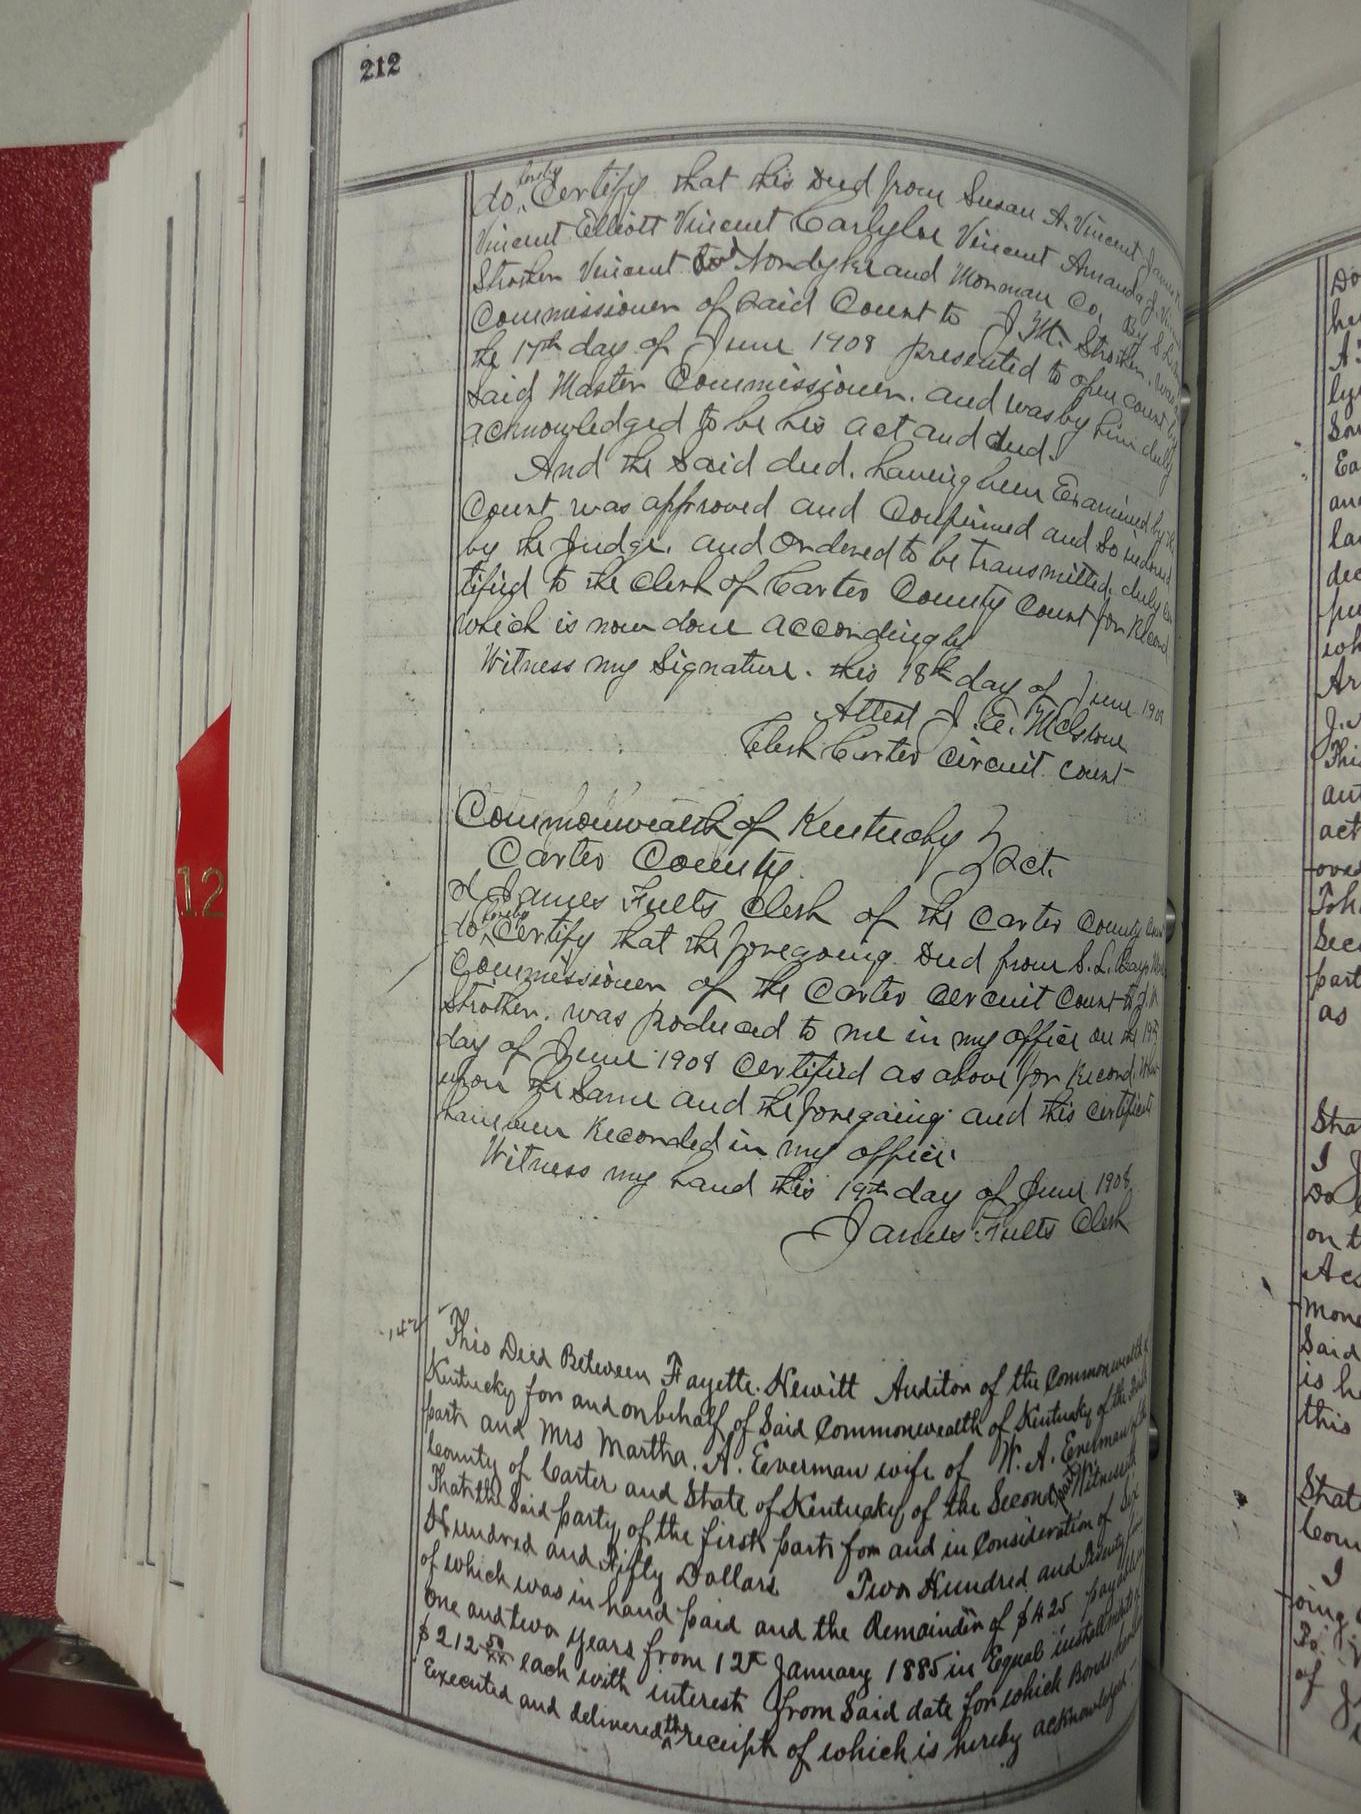 212
do hereby Certify that this Deed from Susan A. Vincent James
Vincent Elliott Vincent Carlyloe Vincent Amanda J.
Strother Vincent and Nordyke and Morman Co. By S. L.
Commissioner of Said Court to J. M. Strother. was
the 17th day of June 1908 presented to open court by
Said Master Commissioner. and was by him duly
acknowledged to be his act and deed.
And the Said deed. having been Examined by the
Court was approved and Confirmed and So indorsed
by the Judge. and Ordered to be transmitted. duly cer
tified to the Clerk of Carter County Court for Record
which is now done accordingly
Witness my Signature. this 18th day of June 1908
Attest J. E. McGlone
Clerk Carter Circuit Court
Commonwealth of Kentucky }
Carter County. } Sct.
I James Fults Clerk of the Carter County Court
do hereby Certify that the foregoing Deed from S. L. Bays,
Commissioner of the Carter Circuit Court to J. M.
Strother. was produced to me in my office on the 19th
day of June 1908 Certified as above for Record. Where
upon the Same and the foregoing and this Certificate
have been Recorded in my office.
Witness my hand this 19th day of June 1908.
James Fults Clerk
12
This Deed Between Fayette. Hewitt Auditor of the Commonwealth of
Kentucky for and on behalf of Said Commonwealth of Kentucky of the First
part and Mrs Martha. A. Everman wife of W. A. Everman of the
County of Carter and State of Kentucky of the Second part Witnesseth
That the Said party of the first part for and in Consideration of Six
Hundred and Fifty Dollars Two Hundred and Twenty five
of which was in hand paid and the Remainder of $425 payable in
One and two years from 12th January 1885 in Equal installments of
$212 50/xx each with interest from Said date for which Bonds
Executed and delivered the receipt of which is hereby acknowledged.